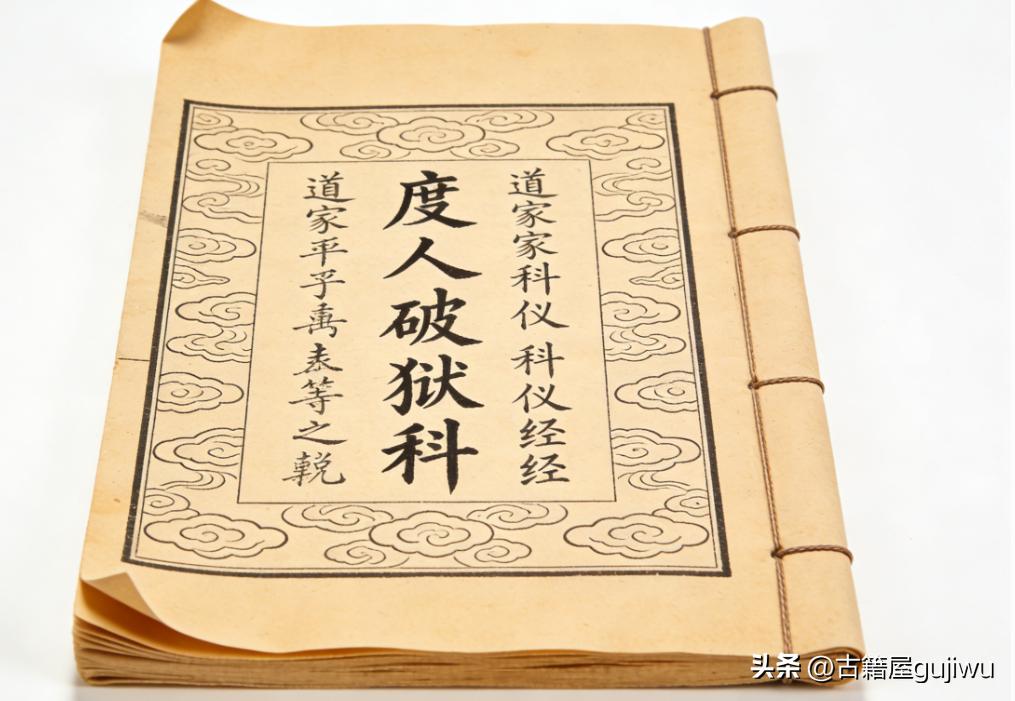 道家家科仪 科仪经经
度人破狱科
道家平乎善表等之
头条 @古籍屋gujiwu